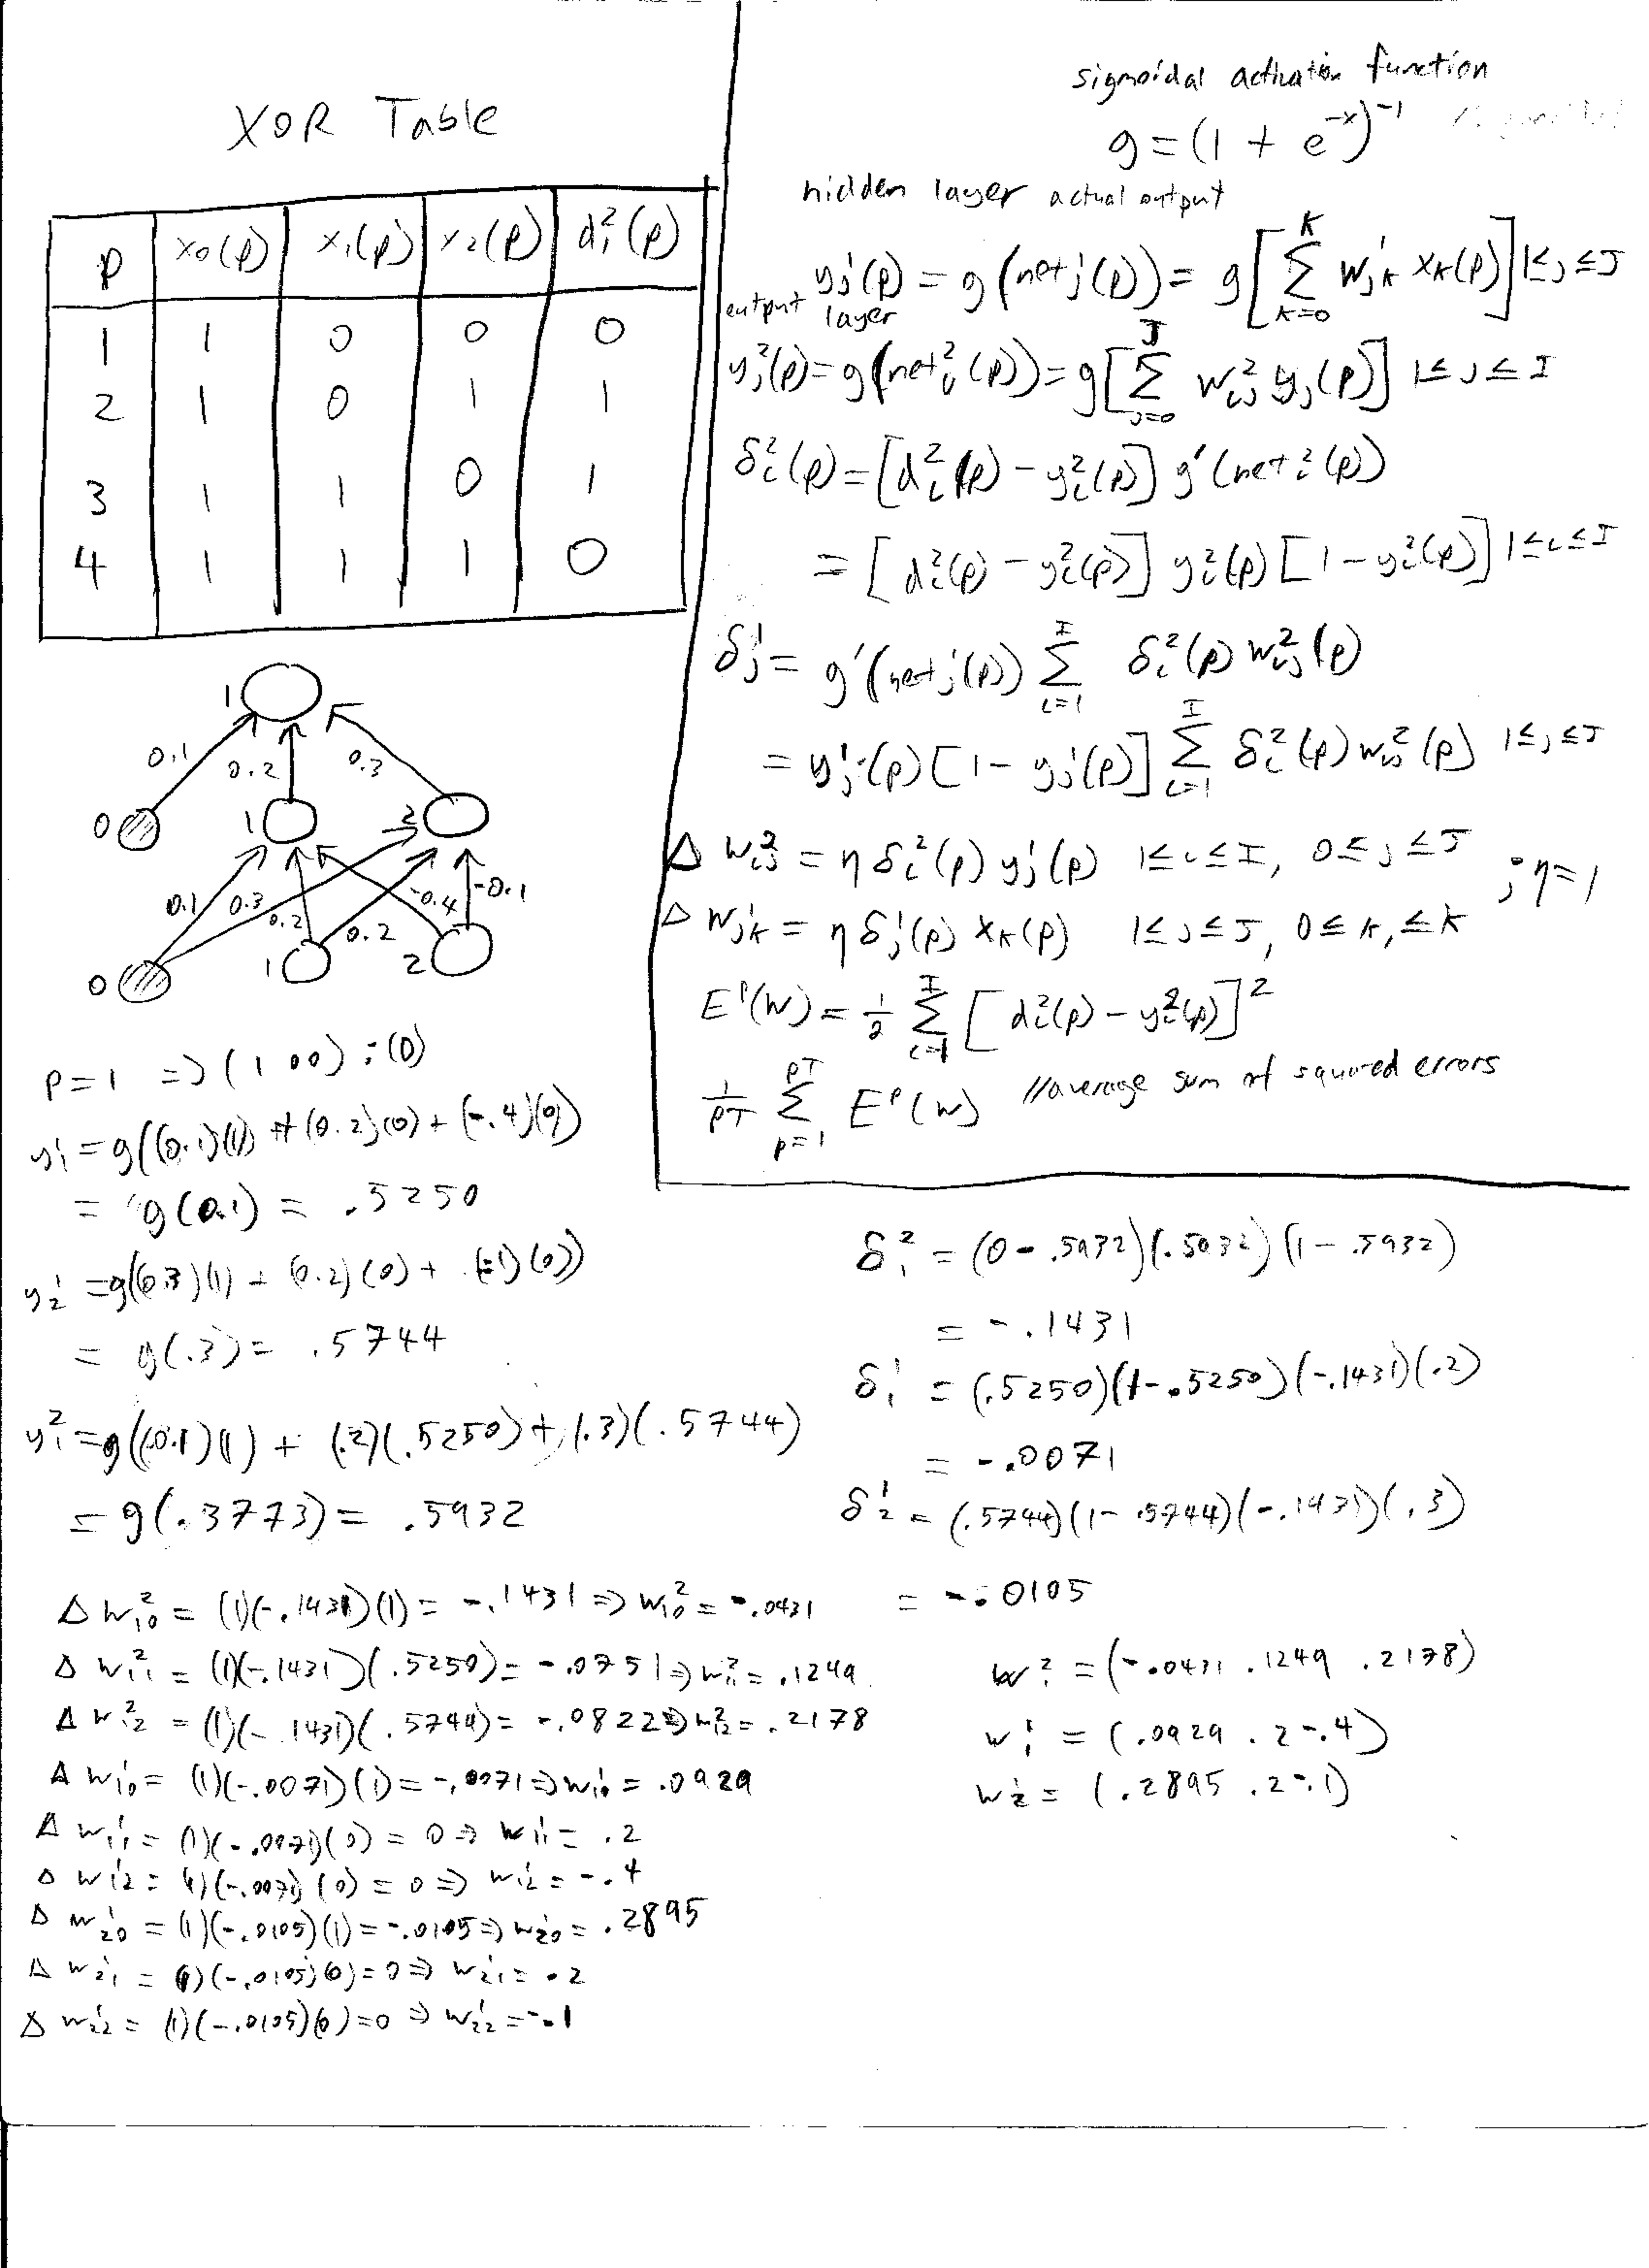 XOR Table
p x₀(p) x₁(p) x₂(p) d₁²(p)
1 1 0 0 0
2 1 0 1 1
3 1 1 0 1
4 1 1 1 0
sigmoidal activation function
g = (1 + e⁻ˣ)⁻¹
hidden layer actual output
yⱼ¹(p) = g(netⱼ¹(p)) = g[∑_{k=0}^{K} wⱼₖ¹ xₖ(p)] 1≤j≤J
output layer
yⱼ²(p) = g(netᵢ²(p)) = g[∑_{j=0}^{J} wᵢⱼ² yⱼ(p)] 1≤j≤I
δᵢ²(p) = [dᵢ²(p) - yᵢ²(p)] g'(netᵢ²(p))
= [dᵢ²(p) - yᵢ²(p)] yᵢ²(p) [1 - yᵢ²(p)] 1≤i≤I
δⱼ¹ = g'(netⱼ¹(p)) ∑_{i=1}^{I} δᵢ²(p) wᵢⱼ²(p)
= yⱼ¹(p) [1 - yⱼ¹(p)] ∑_{i=1}^{I} δᵢ²(p) wᵢⱼ²(p) 1≤j≤J
Δ wᵢⱼ² = η δᵢ²(p) yⱼ¹(p) 1≤i≤I, 0≤j≤J ; η=1
Δ wⱼₖ¹ = η δⱼ¹(p) xₖ(p) 1≤j≤J, 0≤k,≤K
Eᵖ(w) = 1/2 ∑_{i=1}^{I} [dᵢ²(p) - yᵢ²(p)]²
1/PT ∑_{p=1}^{PT} Eᵖ(w) //average sum of squared errors
1
0.1 0.2 0.3
0 1 2
0.1 0.3 0.2 0.2 -0.4 -0.1
0 1 2
p=1 => (1 0 0) : (0)
y₁¹ = g((0.1)(1) + (0.2)(0) + (-.4)(0)
= g(0.1) = .5250
y₂¹ = g(0.3)(1) + (0.2)(0) + (-.1)(0))
= g(.3) = .5744
y₁² = g((0.1)(1) + (.2)(.5250) + (.3)(.5744)
= g(.3773) = .5932
δ₁² = (0 - .5932)(.5932)(1 - .5932)
= -.1431
δ₁¹ = (.5250)(1-.5250)(-.1431)(.2)
= -.0071
δ₂¹ = (.5744)(1-.5744)(-.1431)(.3)
= -.0105
Δ w₁₀² = (1)(-.1431)(1) = -.1431 => w₁₀² = -.0431
Δ w₁₁² = (1)(-.1431)(.5250) = -.0751 => w₁₁² = .1249
Δ w₁₂² = (1)(-.1431)(.5744) = -.0822 => w₁₂² = .2178
Δ w₁₀¹ = (1)(-.0071)(1) = -.0071 => w₁₀¹ = .0929
Δ w₁₁¹ = (1)(-.0071)(0) = 0 => w₁₁¹ = .2
Δ w₁₂¹ = (1)(-.0071)(0) = 0 => w₁₂¹ = -.4
Δ w₂₀¹ = (1)(-.0105)(1) = -.0105 => w₂₀¹ = .2895
Δ w₂₁¹ = (1)(-.0105)(0) = 0 => w₂₁¹ = .2
Δ w₂₂¹ = (1)(-.0105)(0) = 0 => w₂₂¹ = -.1
w₁² = (-.0431 .1249 .2178)
w₁¹ = (.0929 .2 -.4)
w₂¹ = (.2895 .2 -.1)